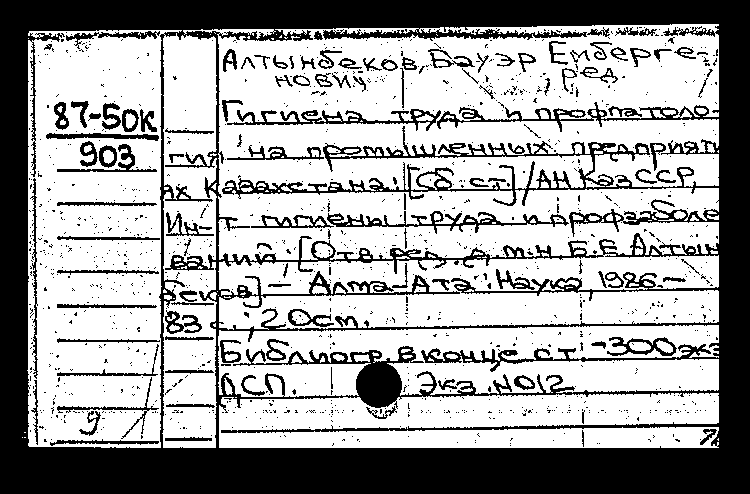 Алтынбеков, Бауэр Емберге-
нович ред.
87-50к
903
Гигиена труда и профпатоло-
гия на промышленных предприяти
ях Казахстана: [Сб. ст.] / АН КазССР,
Ин-т гигиены труда и профзаболе
ваний; [Отв. ред. д. м. н. Б. Е. Алтын
беков]. — Алма-Ата: Наука, 1986. —
83 с.; 20 см.
Библиогр. в конце ст. - 300 экз
ДСП. Экз. №012
9